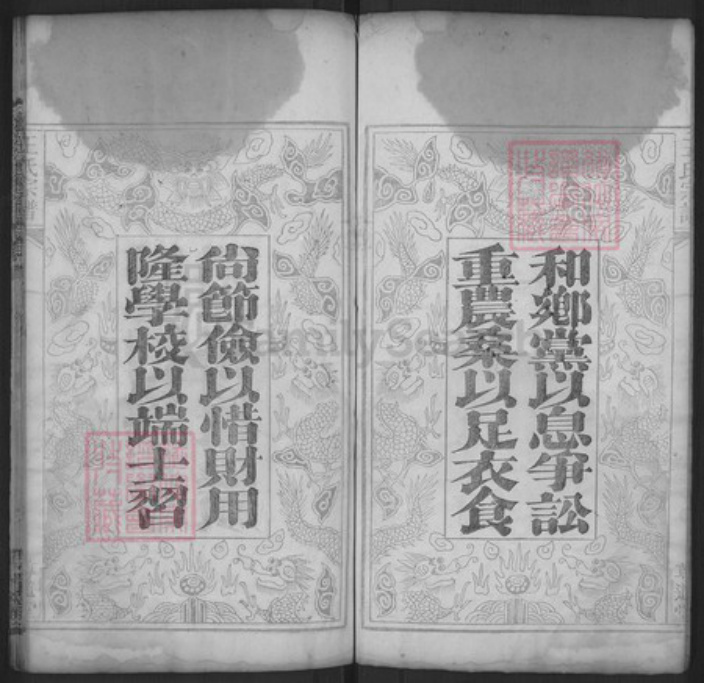 和鄉黨以息爭訟
重農桑以足衣食
尙節儉以惜財用
隆學校以端士習
FamilySearch